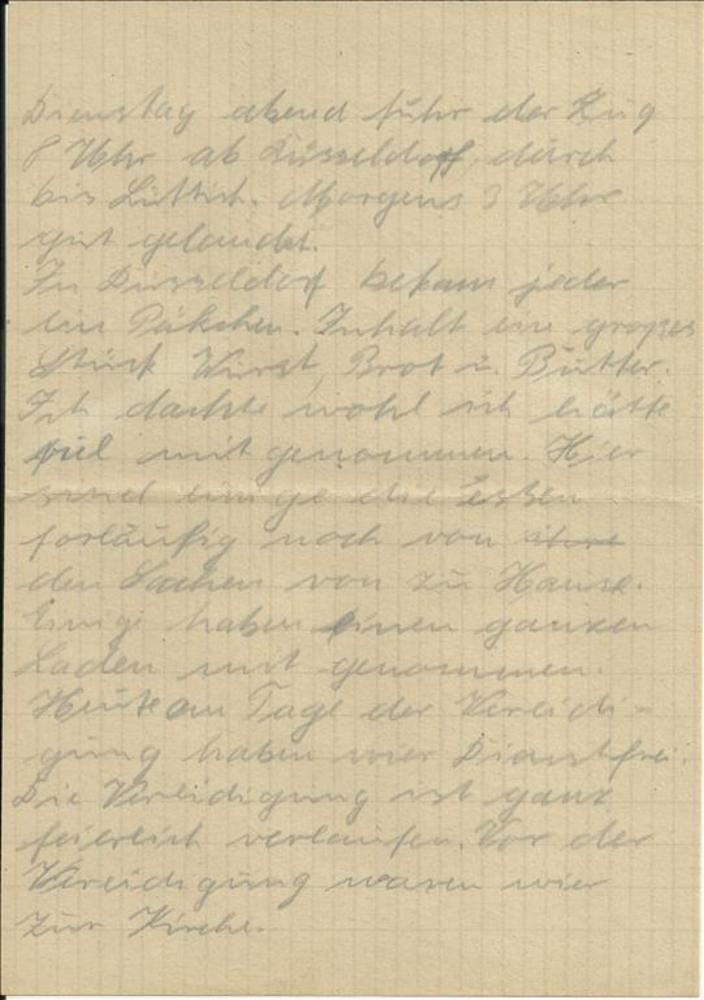 Dienstag abend fuhr der Zug
8 Uhr ab Düsseldorf, durch
bis Lüttich. Morgens 3 Uhr
gut gelandet.
In Düsseldorf bekam jeder
ein Päkchen. Inhalt ein großes
Stück Wurst, Brot u. Butter.
Ich dachte wohl ich hätte
viel mit genommen. Hier
sind einige die essen
forläufig noch von
den Sachen von zu Hause.
Einige haben einen ganzen
Laden mit genommen.
Heute am Tage der Vereidi-
gung haben wier Dienstfrei.
Die Vereidigung ist ganz
feierlich verlaufen. Vor der
Vereidigung waren wier
zur Kirche.